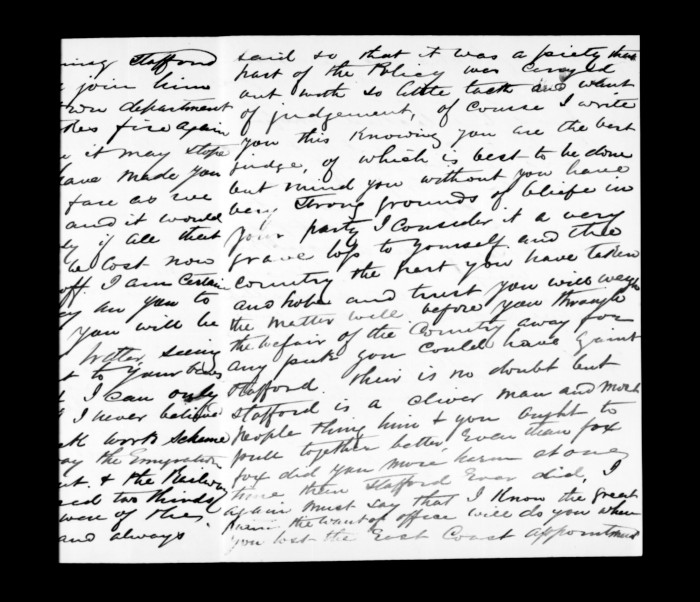 ning Stafford
join him
own department
takes fire again
it may stop
have made you
far as we
and it would
if all that
be lost now
off. I am certain
an you to
you will be
Letter, seeing
to Your
I can only
I never believed
work scheme
the Emigration
& the Railway
two thirds
of this,
and always
said so that it was a piety that
part of the Policy was carryed
out with so little tack and want
of judgement, of course I write
you this knowing you are the best
judge, of which is best to be done
but mind you without you have
very strong grounds of bliefe in
your party I consider it a very
grave loss to yourself and the
Country the part you have taken
and hope and trust you will weigh
the matter well before you through
the wefair of the Country away for
any you could have gaint
Stafford. Their is no doubt but
Stafford is a cliver man and most
People thing him & you ought to
pull together better Even than fox
fox did you more harm at one
time then Stafford Ever did, I
again must say that I know the great
the want of office will do you when
you lost the East Coast appointment